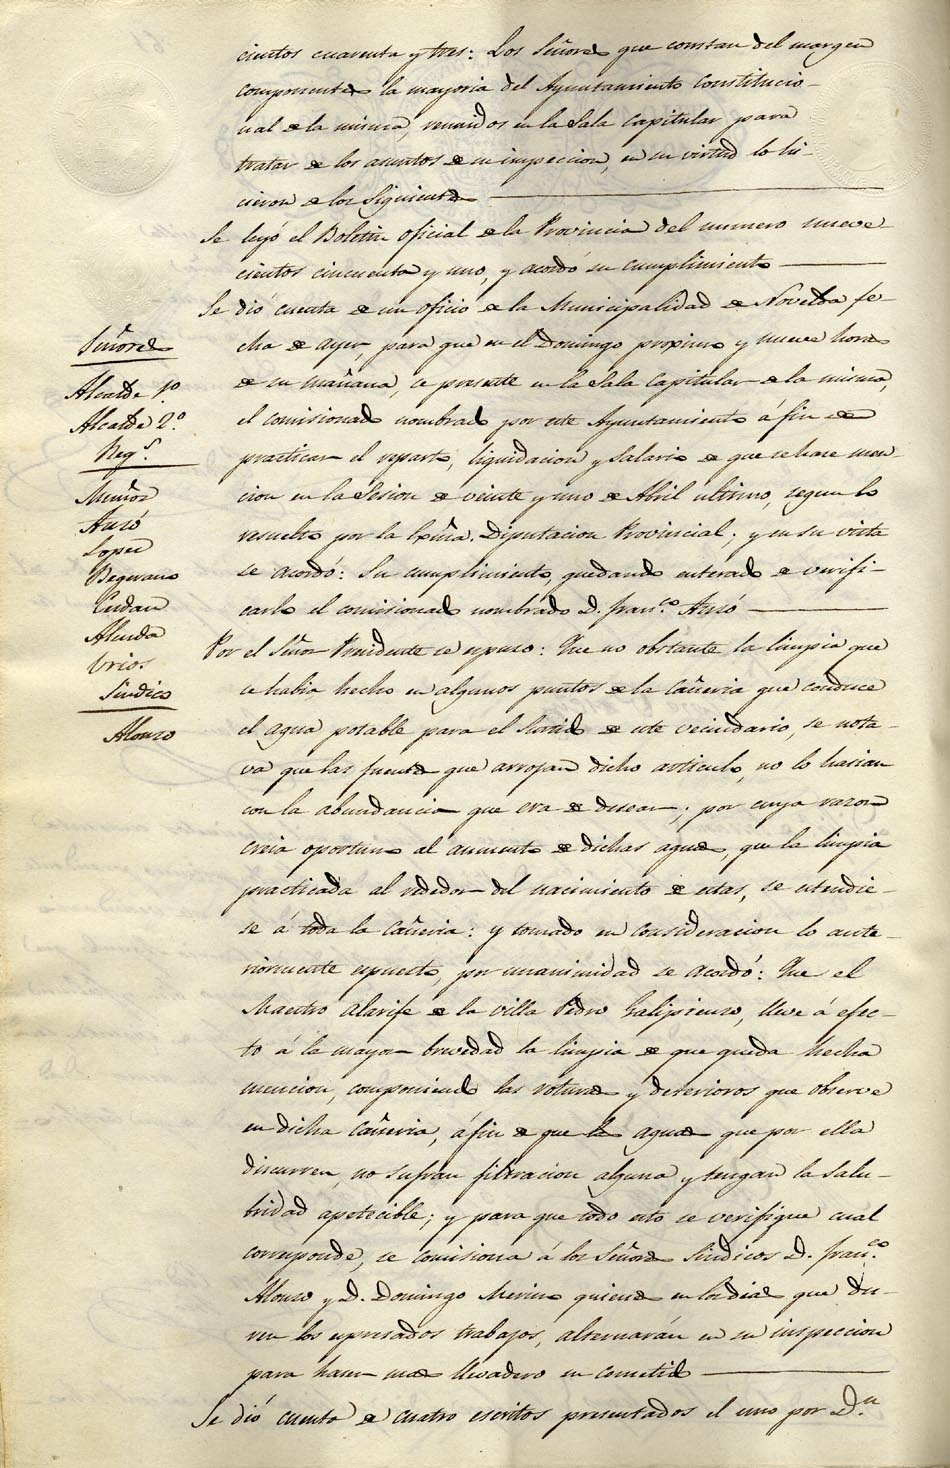 cientos cuarenta y tres: Los Señores que constan del margen
componentes la mayoria del Ayuntamiento Constitucio-
nal de la misma, reunidos en la Sala Capitular para
tratar de los asuntos de su inspeccion, en su virtud lo hi-
cieron de los siguientes
Se leyó el Boletin oficial de la Provincia del numero nueve
cientos cincuenta y uno, y acordó su cumplimiento
Se dió cuenta de un oficio de la Municipalidad de Novelda fe-
cha de ayer, para que en el Domingo proximo y nueve horas
de su mañana, se presente en la Sala Capitular de la misma,
el comisionado nombrado por este Ayuntamiento á fin de
practicar el reparto, liquidacion y salario de que se hace men-
cion en la Sesion de veinte y uno de Abril ultimo, segun lo
resuelto por la Exma. Diputacion Provincial; y en su vista
se acordó: Su cumplimiento, quedando enterado de verifi-
carlo el comisionado nombrado D. Fran.co Azió
Por el Señor Presidente se espuso: Que no obstante la limpia que
se habia hecho en algunos puntos de la Cañeria que conduce
el agua potable para el surtido de este vecindario, se nota-
va que las fuentes que arrojan dicho articulo, no lo hacian
con la abundancia que era de desear; por cuya razon
creia oportuno al aumento de dichas aguas, que la limpia
practicada al rededor del nacimiento de estas, se estendie-
se á toda la Cañeria: y tomado en consideracion lo ante-
riormente espuesto, por unanimidad se acordó: Que el
Maestro Alarife de la villa Pedro Galipienso, lleve á efec-
to á la mayor brevedad la limpia de que queda hecha
mencion, componiendo las roturas y deterioros que observe
en dicha Cañeria, á fin de que las aguas que por ella
discurren, no sufran filtracion alguna y tengan la salu-
bridad apetecible; y para que todo esto se verifique cual
corresponde, se comisiona á los Señores Sindicos D. Fran.co
Alonso y D. Domingo Merino quienes en los dias que du-
ren los espresados trabajos, alternarán en su inspeccion
para hacer mas llevadero su cometido
Se dió cuenta de cuatro escritos presentados el uno por D.n
Señores
Alcalde 1.º
Alcalde 2.º
Reg.s
Muñoz
Azió
Lopez
Cerdan
Alenda
Urios
Sindico
Alonso